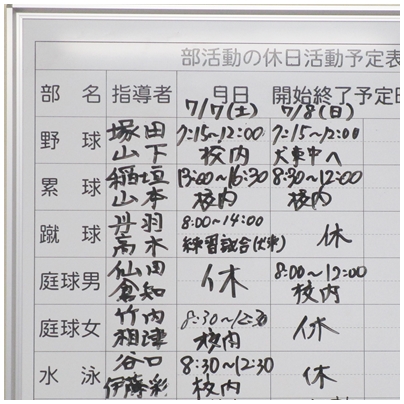 部活動の休日活動予定表
部 名 指導者 月日 開始終了予定時
7/7(土) 7/8(日)
野 球 塚田 7:15~12:00 7:15~12:00
山下 校内 犬東中へ
累 球 稲垣 13:00~16:30 8:30~12:00
山本 校内 校内
蹴 球 丹羽 8:00~14:00 休
高木 練習試合
庭球男 仙田 休 8:00~12:00
倉知 校内
庭球女 竹内 8:30~12:30 休
相津 校内
水 泳 谷口 8:30~12:30 休
伊藤彩 校内